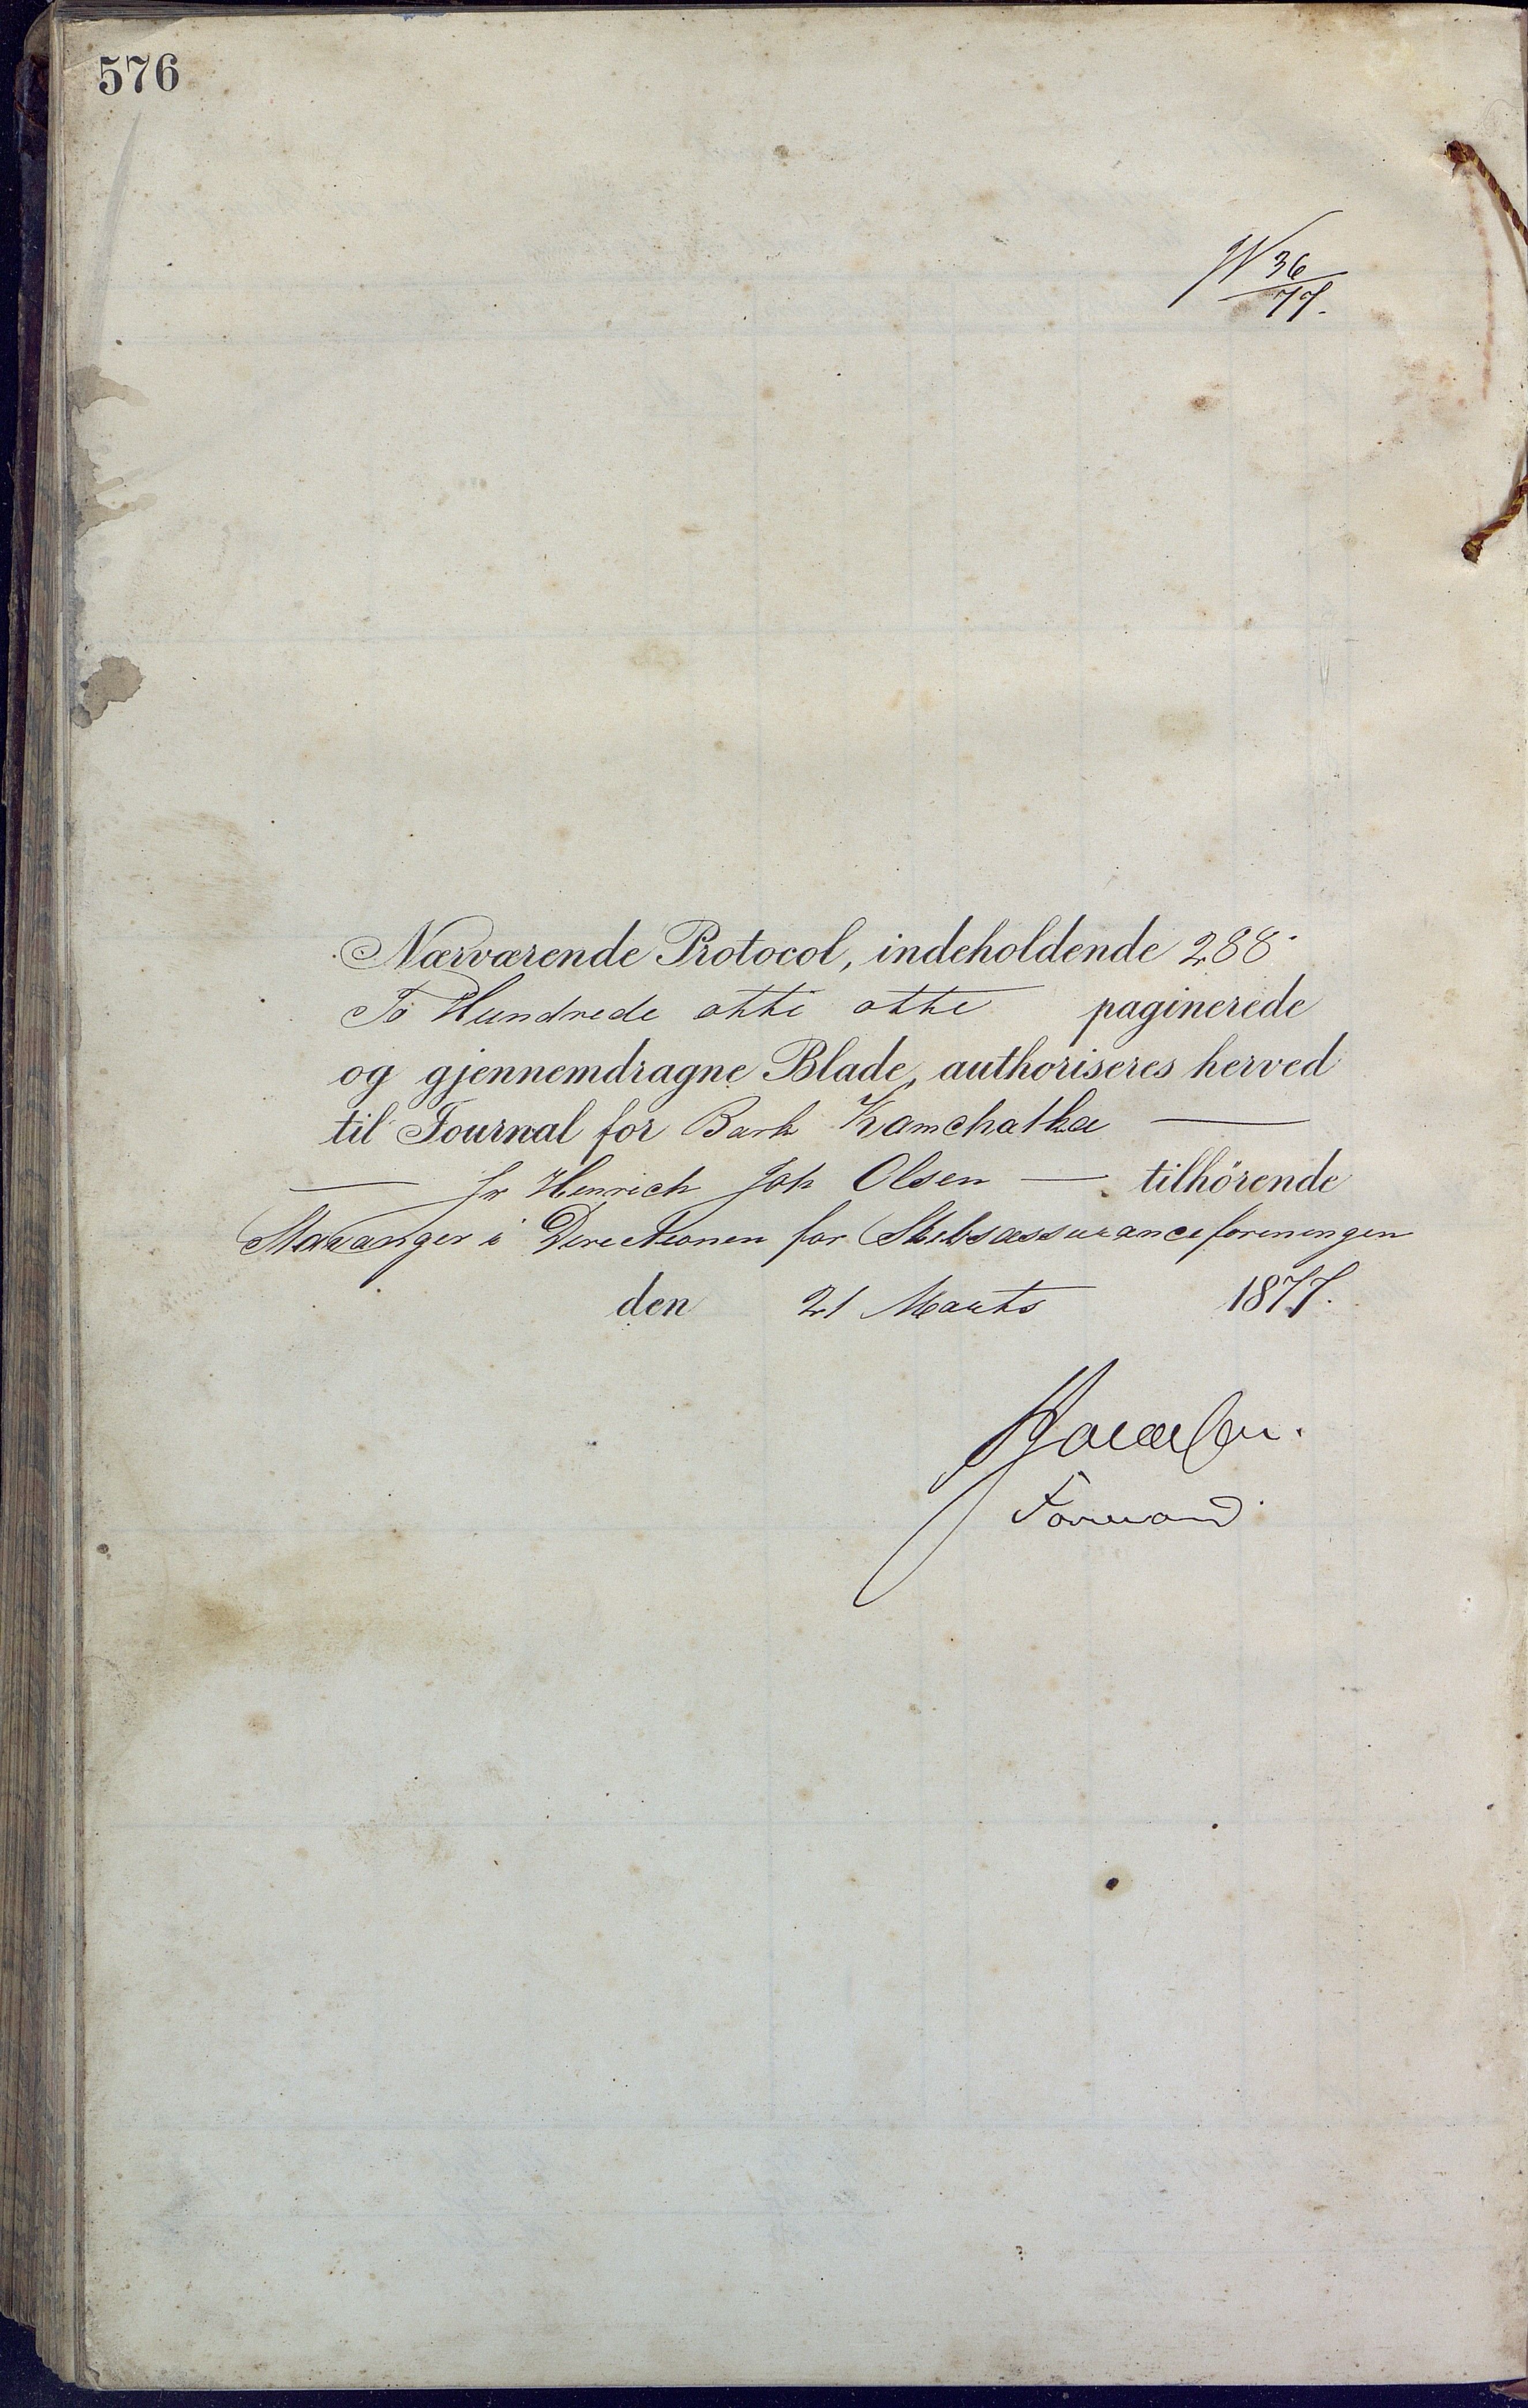 576
N 36
77.
Nærværende Protocol, indeholdende 288
To Hundrede otti otte paginerede
og gjennemdragne Blade, authoriseres herved
til Journal for Bark Kamchatka —
— Hr Henrich Joh Olsen — tilhörende
Stavanger i Directionen for Skibsassuranceforeningen
den 21 Marts 1877.
Formand